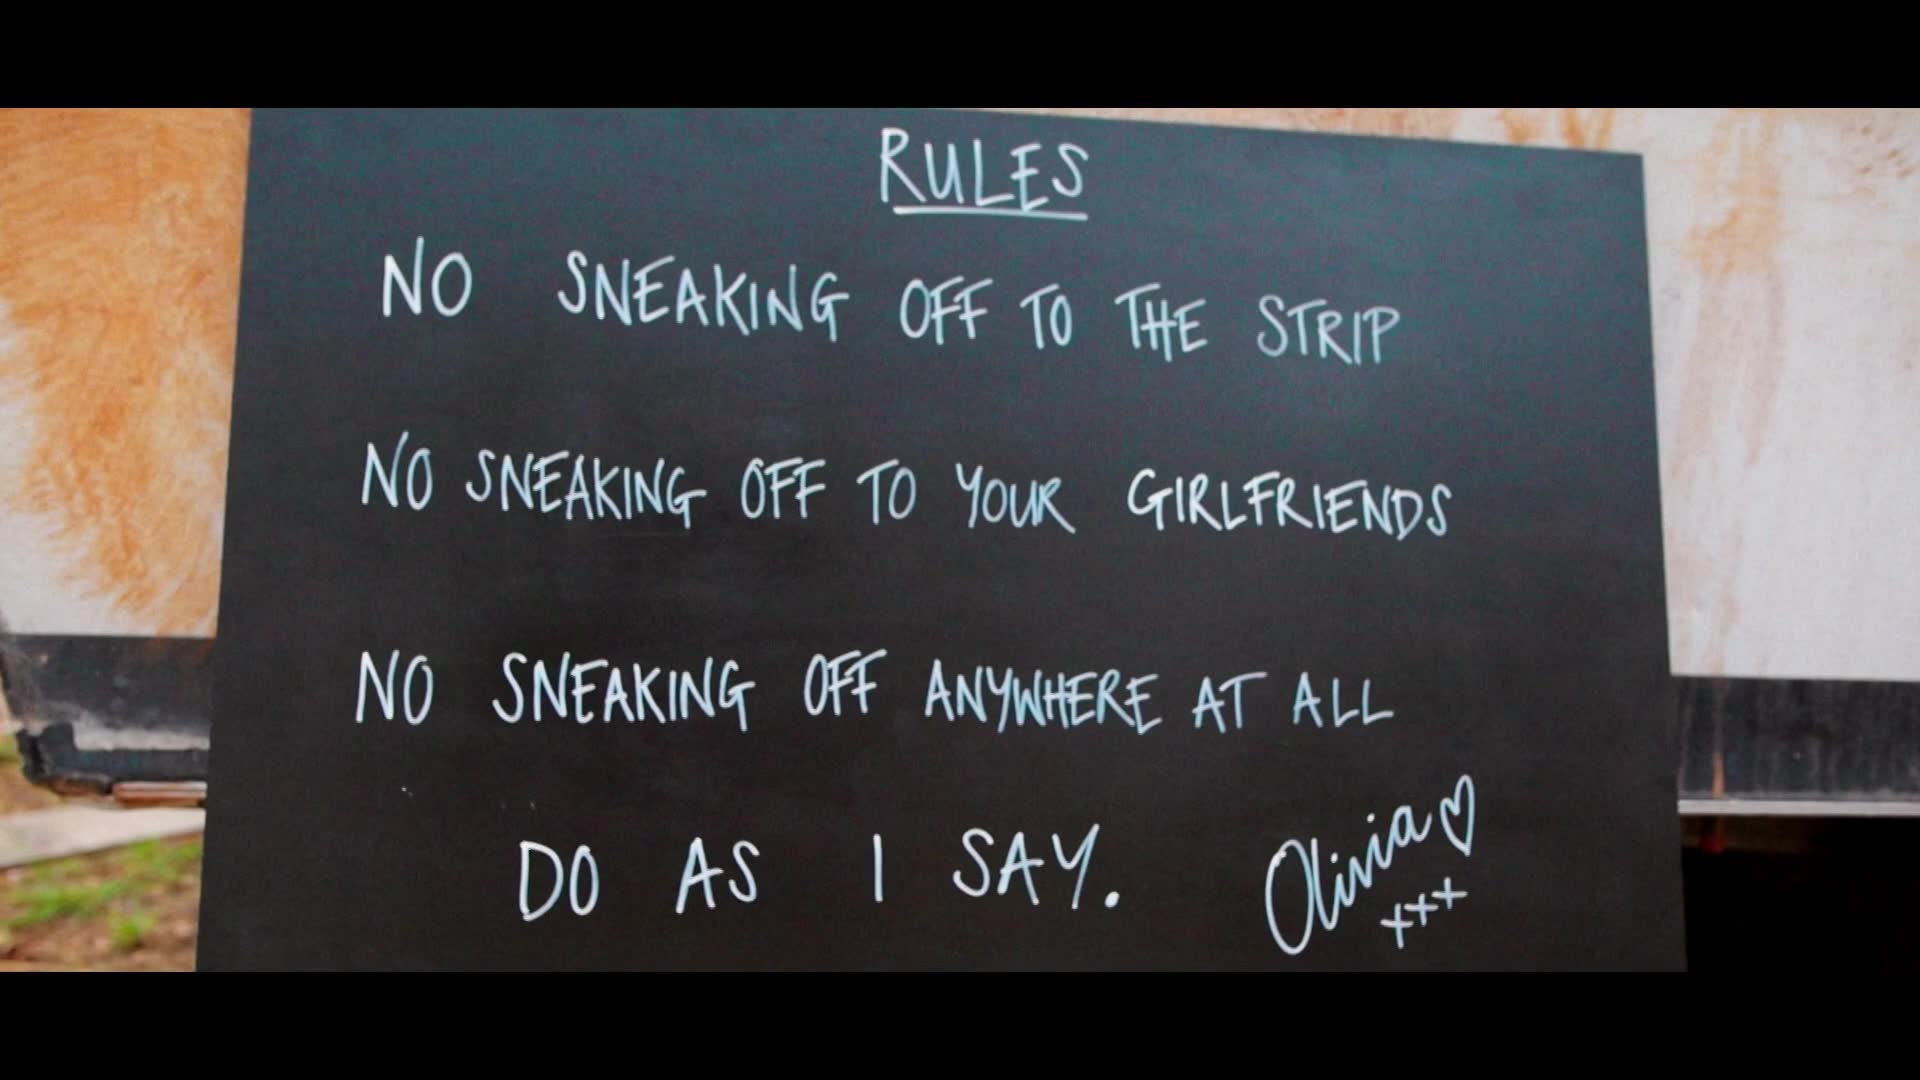 RULES
NO SNEAKING OFF TO THE STRIP
NO SNEAKING OFF TO YOUR GIRLFRIENDS
NO SNEAKING OFF ANYWHERE AT ALL
DO AS I SAY.
Olivia ♡
xxx